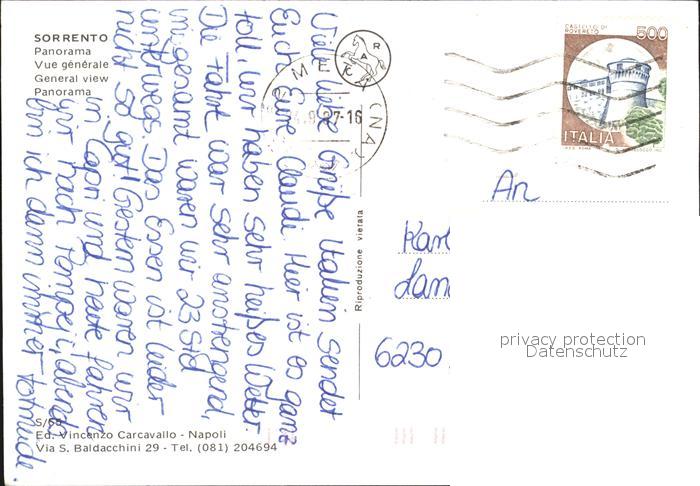 SORRENTO
Panorama
Vue générale
General view
Panorama
Viele liebe Grüße Italien sendet
Euch Eure Claudi. Hier ist es ganz
toll, wir haben sehr heißes Wetter.
Die Fahrt war sehr anstrengend,
insgesamt waren wir 23 Std
unterwegs. Das Essen ist leider
nicht so gut! Gestern waren wir
in Capri und heute fahren
wir nach Pompeji, abends
bin ich dann immer todmüde.
META (NA)
9.87-16
R
CASTELLO DI
ROVERETO
500
ITALIA
An
6230
Riproduzione vietata
privacy protection
Datenschutz
S/65
Ed. Vincenzo Carcavallo - Napoli
Via S. Baldacchini 29 - Tel. (081) 204694